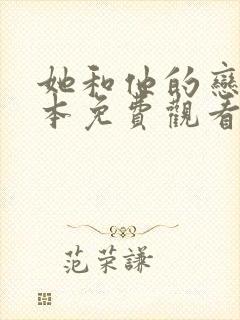 她和他的戀
本免費觀看
范荣謙